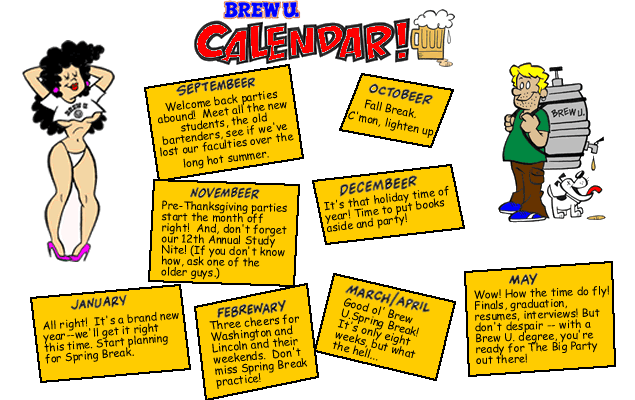 BREW U.
CALENDAR!
SEPTEMBEER
Welcome back parties
abound! Meet all the new
students, the old
bartenders, see if we've
lost our faculties over the
long hot summer.
OCTOBEER
Fall Break.
C'mon, lighten up
BREW U.
BREW U.
NOVEMBEER
Pre-Thanksgiving parties
start the month off
right! And, don't forget
our 12th Annual Study
Nite! (If you don't know
how, ask one of the
older guys.)
DECEMBEER
It's that holiday time of
year! Time to put books
aside and party!
JANUARY
All right! It's a brand new
year--we'll get it right
this time. Start planning
for Spring Break.
FEBREWARY
Three cheers for
Washington and
Lincoln and their
weekends. Don't
miss Spring Break
practice!
MARCH/APRIL
Good ol' Brew
U.Spring Break!
It's only eight
weeks, but what
the hell...
MAY
Wow! How the time do fly!
Finals, graduation,
resumes, interviews! But
don't despair -- with a
Brew U. degree, you're
ready for The Big Party
out there!